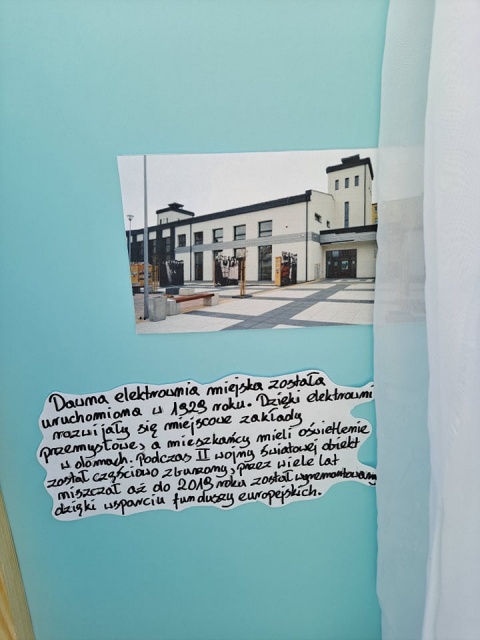 Dawna elektrownia miejska została
uruchomiona w 1929 roku. Dzięki elektrowni
rozwijały się miejscowe zakłady
przemysłowe, a mieszkańcy mieli oświetlenie
w domach. Podczas II wojny światowej obiekt
został częściowo zburzony, przez wiele lat
niszczał aż do 2019 roku został wyremontowany
dzięki wsparciu funduszy europejskich.